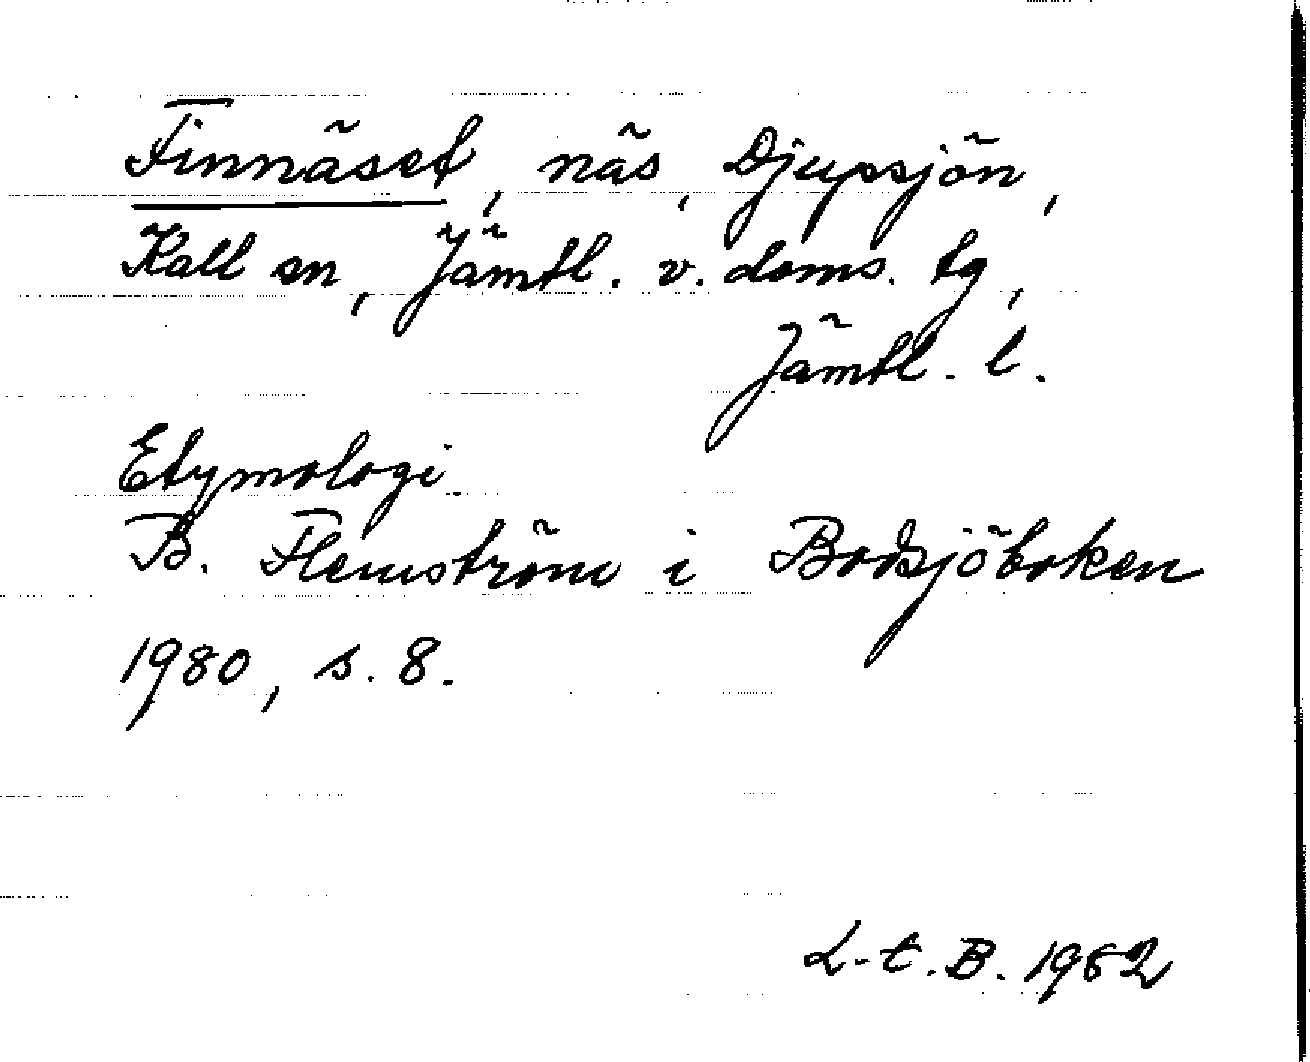 Finnäset, näs, Djupsjön,
Kall sn, Jämtl. v. doms. tg,
Jämtl. l.
Etymologi
B. Flemström i Bodsjöboken
1980, s. 8.
L-t. B. 1982